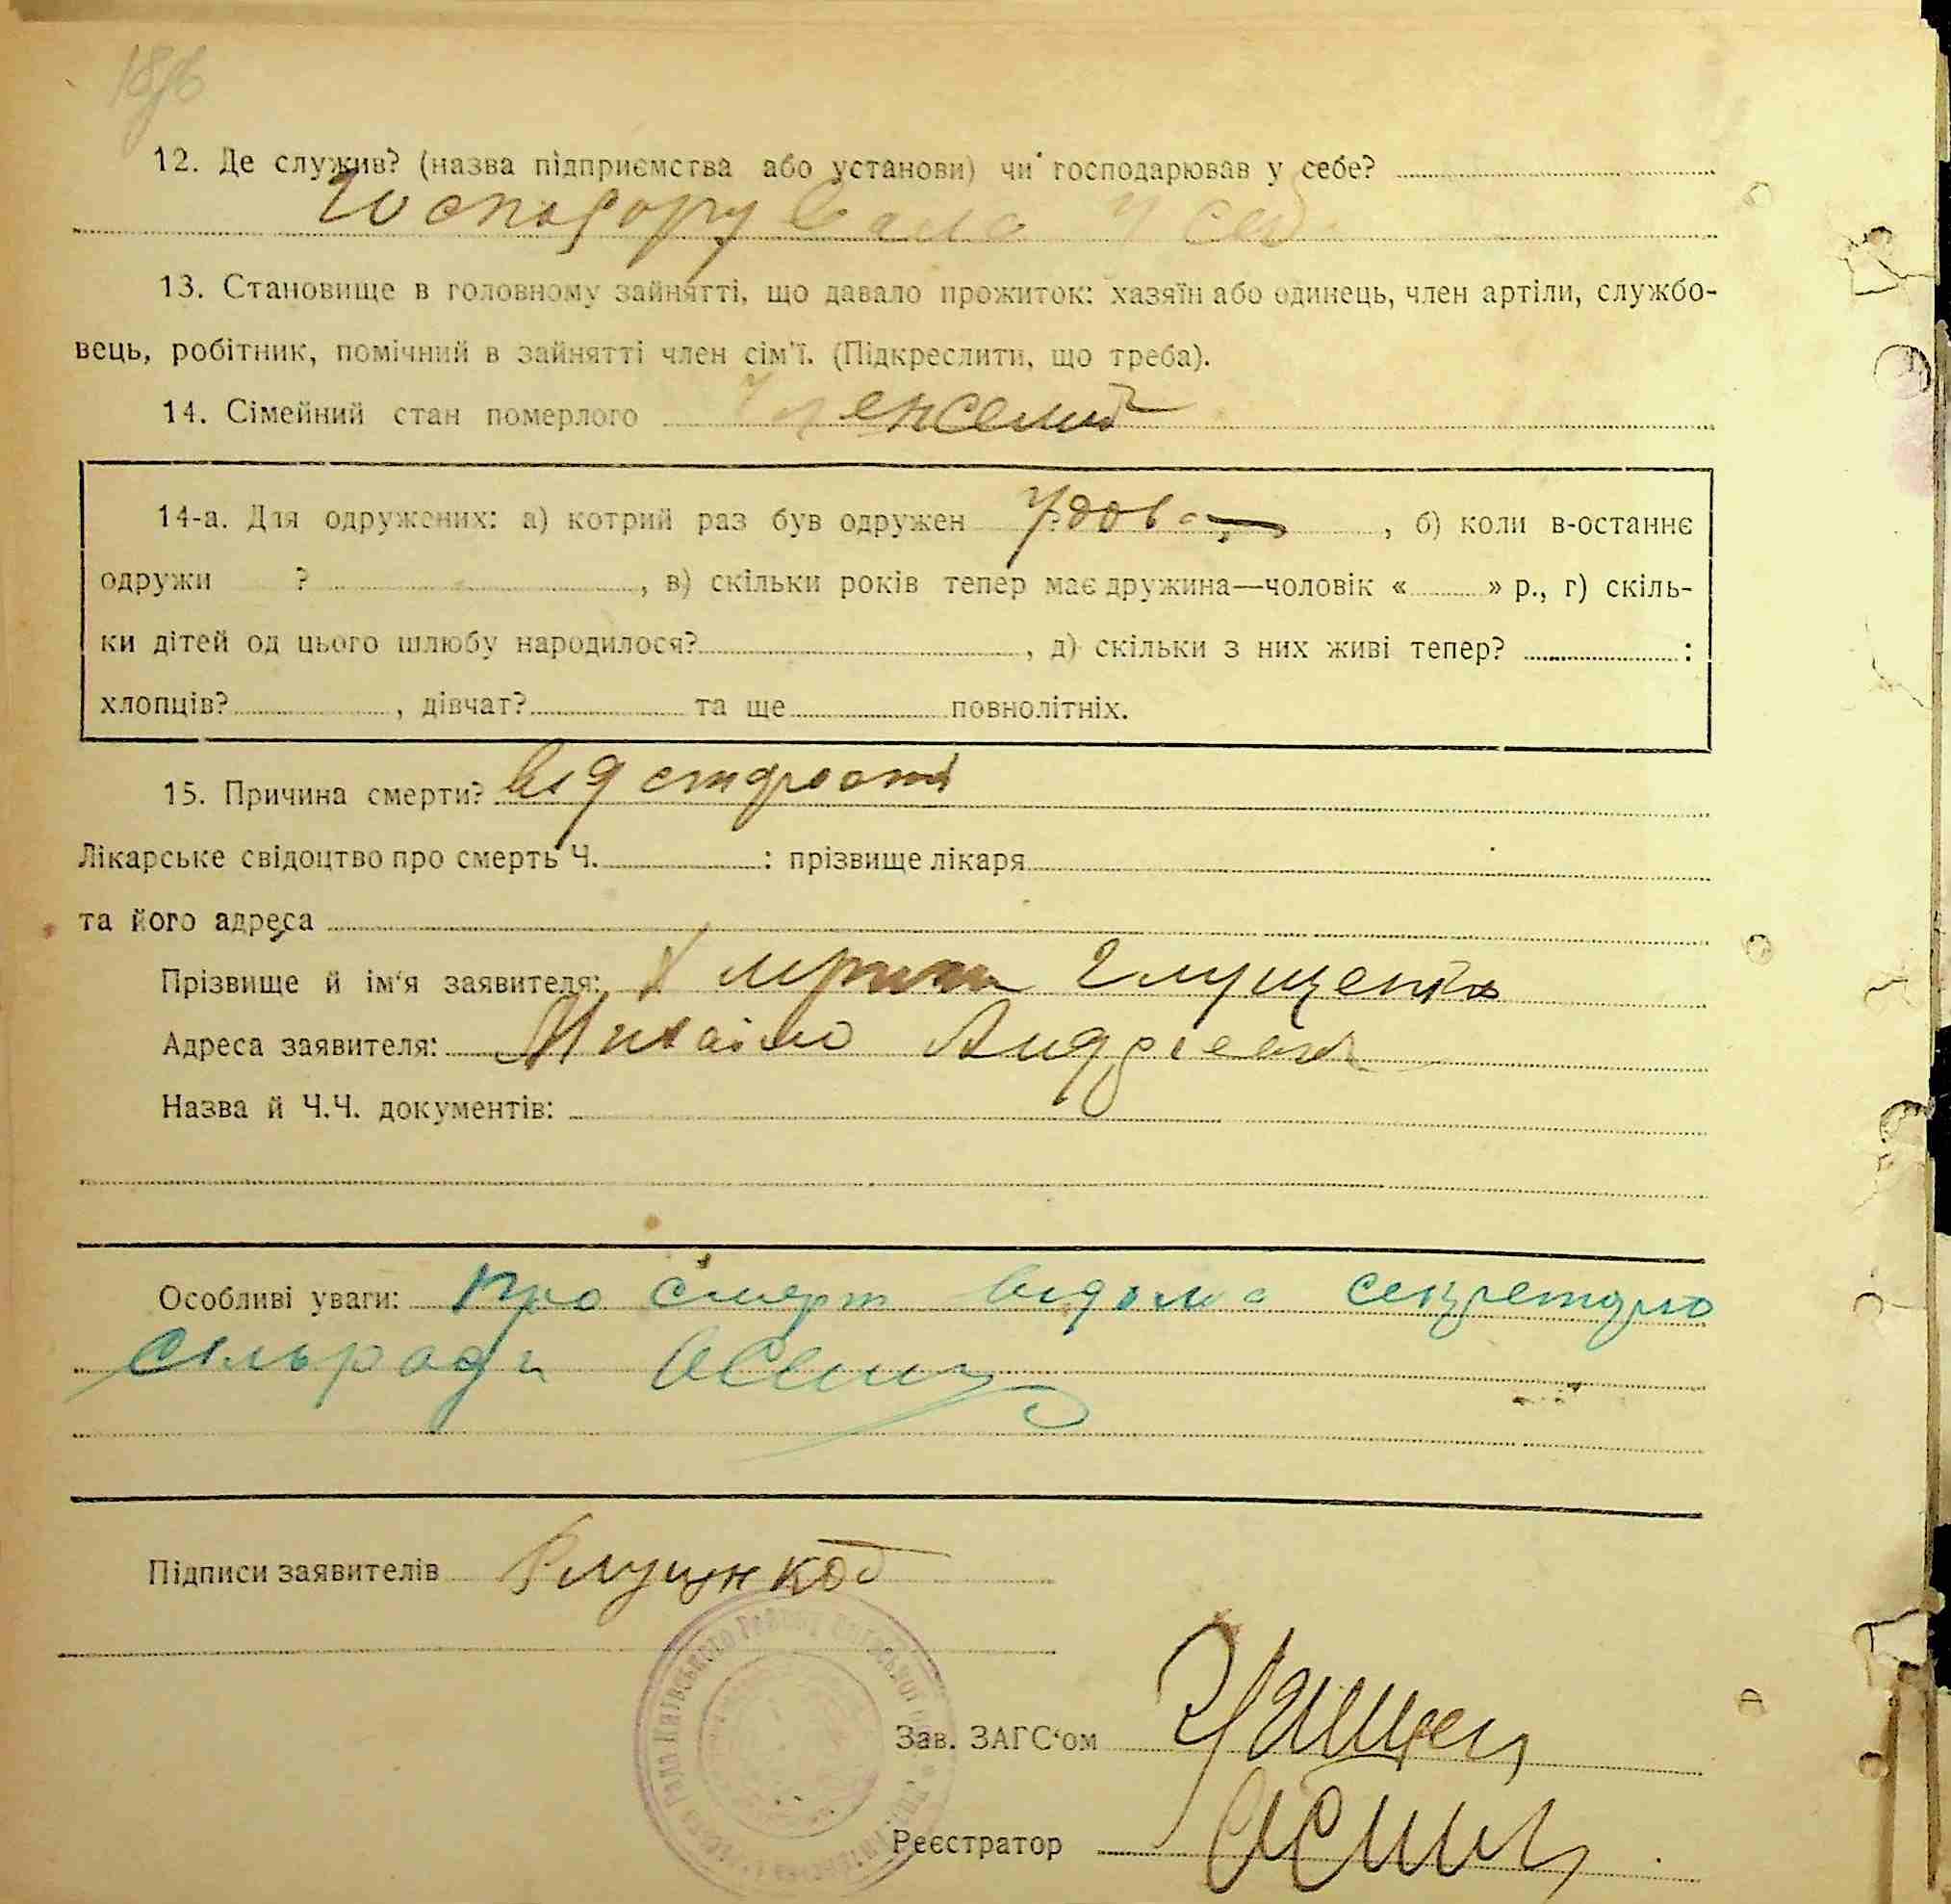 12. Де служив? (назва підприємства або установи) чи господарював у себе?
Господорувала у себ
13. Становище в головному зайнятті, що давало прожиток: хазяїн або одинець, член артіли, службо-
вець, робітник, помічний в зайнятті член сім'ї. (Підкреслити, що треба).
14. Сімейний стан померлого
14-а. Для одружених: а) котрий раз був одружен удова, б) коли в-останнє
одружи ? , в) скільки років тепер має дружина—чоловік « » р., г) скіль-
ки дітей од цього шлюбу народилося? , д) скільки з них живі тепер? :
хлопців? , дівчат? та ще повнолітніх.
15. Причина смерти? від старости
Лікарське свідоцтво про смерть Ч. : прізвище лікаря
та його адреса
Прізвище й ім'я заявителя: Глущенко
Адреса заявителя: Михайло Андрієвич
Назва й Ч.Ч. документів:
Особливі уваги: Про смерт відома секретарю
сільради
Підписи заявителів
Зав. ЗАГС'ом
Реєстратор